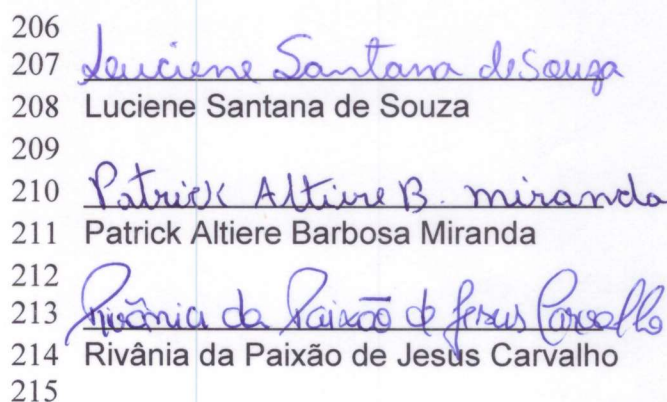 206
207 Luciene Santana de Souza
208 Luciene Santana de Souza
209
210 Patrick Altiere B. miranda
211 Patrick Altiere Barbosa Miranda
212
213 Rivânia da Paixão de Jesus Carvalho
214 Rivânia da Paixão de Jesus Carvalho
215